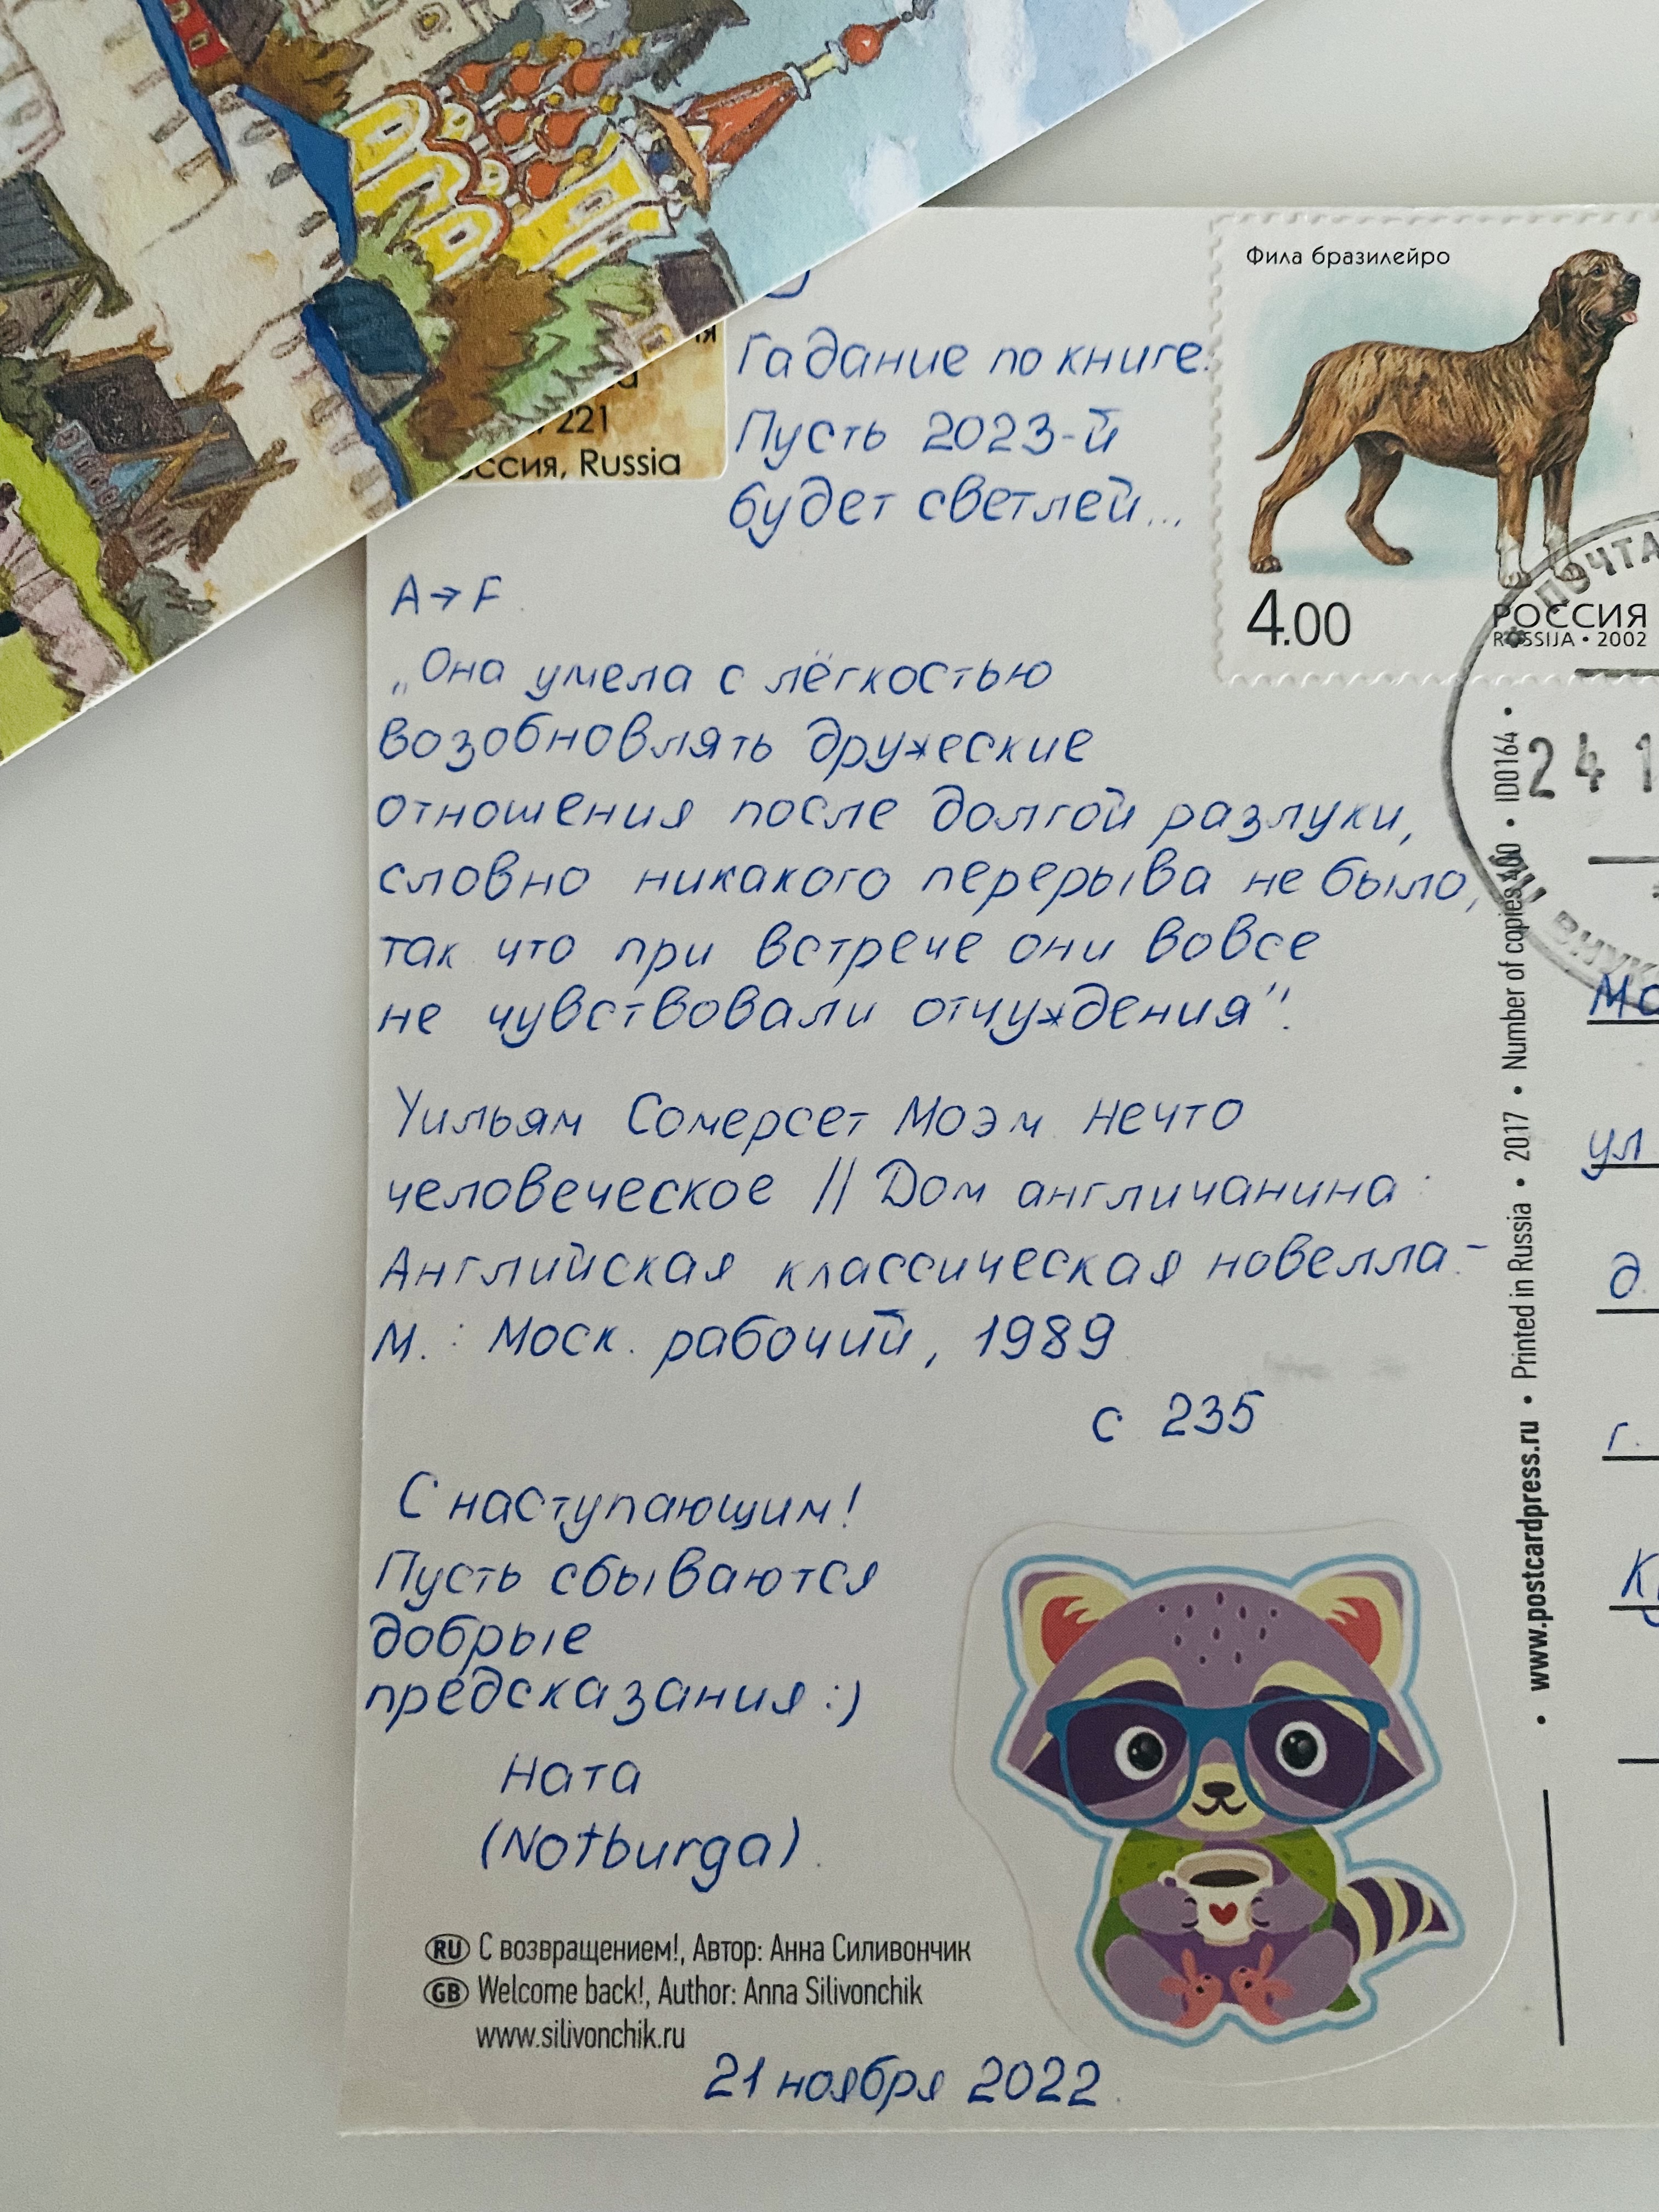 221
Russia
Гадание по книге.
Пусть 2023-й
будет светлей...
Фила бразилейро
4.00
РОССИЯ
ROSSIJA • 2002
ПОЧТА
24 1
A→F.
„Она умела с лёгкостью
возобновлять дружеские
отношения после долгой разлуки,
словно никакого перерыва не было,
так что при встрече они вовсе
не чувствовали отчуждения".
Уильям Сомерсет Моэм. Нечто
человеческое // Дом англичанина:
Английская классическая новелла.-
М.: Моск. рабочий, 1989.
с 235
С наступающим!
Пусть сбываются
добрые
предсказания:)
Ната
(Notburga).
RU С возвращением!, Автор: Анна Силивончик
GB Welcome back!, Author: Anna Silivonchik
www.silivonchik.ru
21 ноября 2022.
• www.postcardpress.ru • Printed in Russia • 2017 • Number of copies 400 • ID0164 •
ул
д.
г.